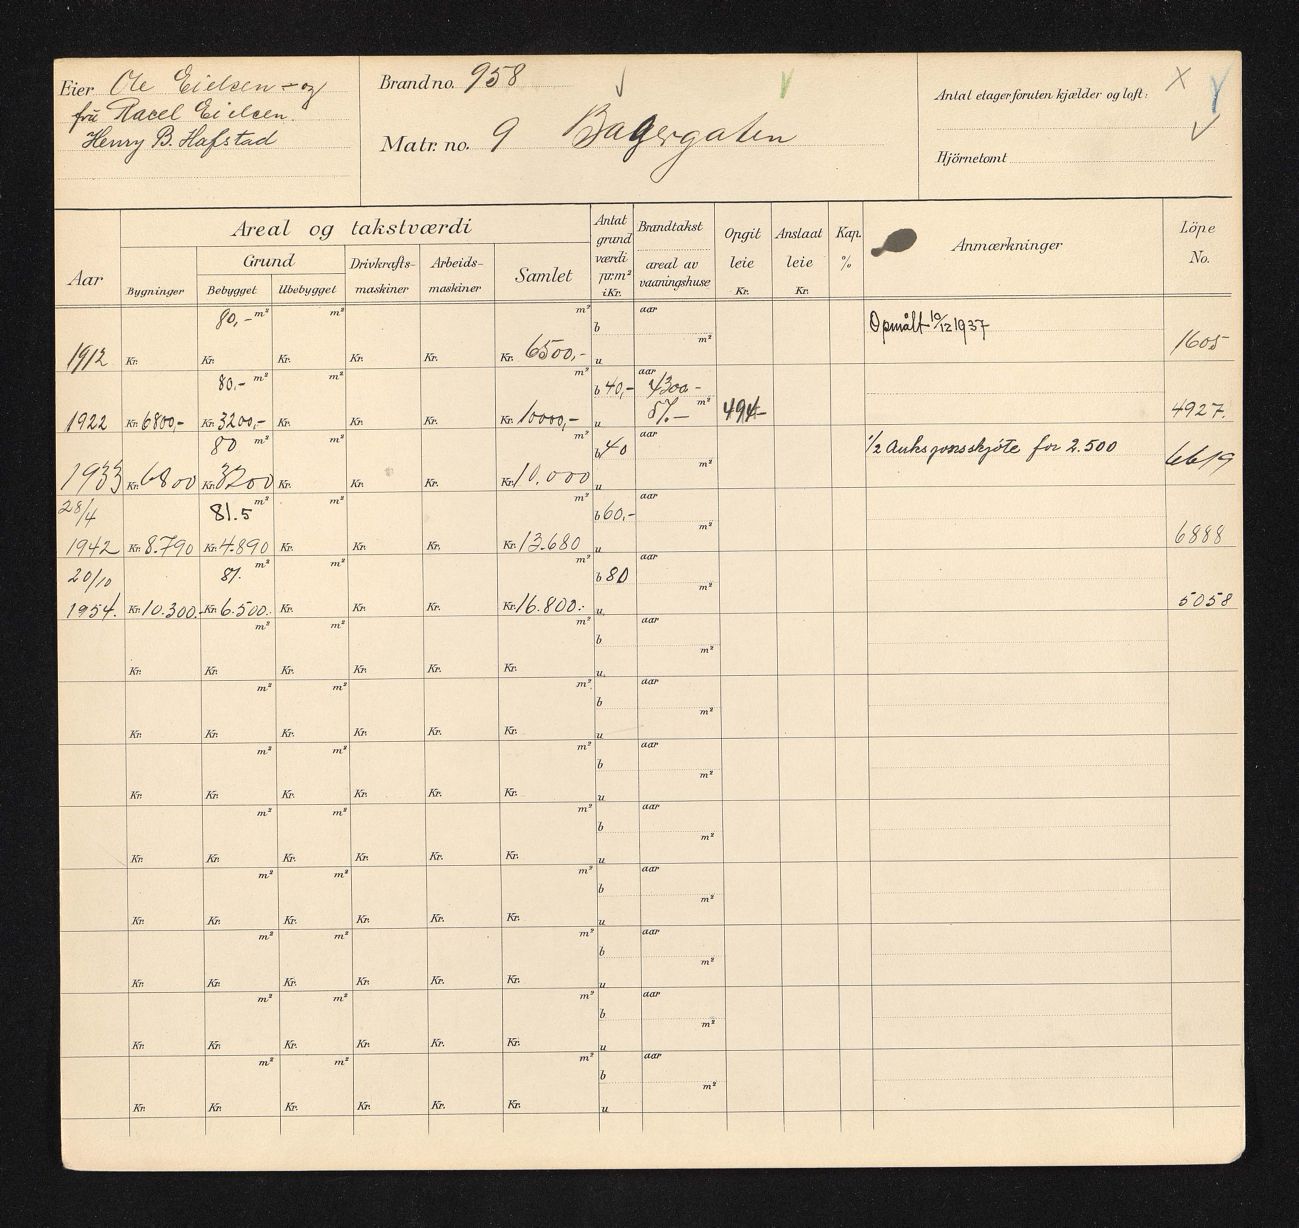 Eier Ole Eielsen - og
frü Racel Eielsen.
Henry B. Hafstad
Brand no. 958
Matr. no. 9 Bagergaten
Antal etager foruten kjælder og loft: X
Hjörnetomt
Aar
Areal og takstværdi
Grund
Bygninger
Bebygget
Ubebygget
Drivkrafts-
maskiner
Arbeids-
maskiner
Samlet
Antat
grund
værdi
pr. m²
i Kr.
Brandtakst
areal av
vaaningshuse
Opgit
leie
Kr.
Anslaat
leie
Kr.
Kap.
%
Anmærkninger
Löpe
No.
80,- m² m² m² aar
b
Opmålt 10/12 1937
1912 Kr. Kr. Kr. Kr. Kr. Kr. 6500,- u m² 1605
80.- m² m² m² b 40,- aar 4300 -
1922 Kr. 6800,- Kr. 3200,- Kr. Kr. Kr. Kr. 10000,- u m² 494- 4927.
80 m² m² m² b 40 aar
1/2 Auksjonsskjöte for 2.500
1933 Kr. 6800 Kr. 3200 Kr. Kr. Kr. Kr. 10.000 u m² 6619
28/4 81.5 m² m² m² b 60,- aar
1942 Kr. 8.790 Kr. 4.890 Kr. Kr. Kr. Kr. 13.680 u m² 6888
20/10 81. m² m² m² b 80 aar
1954. Kr. 10.300.- Kr. 6.500.- Kr. Kr. Kr. Kr. 16.800.- u. m² 5058
m² m² m² b aar
Kr. Kr. Kr. Kr. Kr. Kr. u. m²
m² m² m² b aar
Kr. Kr. Kr. Kr. Kr. Kr. u m²
m² m² m² b aar
Kr. Kr. Kr. Kr. Kr. Kr. u m²
m² m² m² b aar
Kr. Kr. Kr. Kr. Kr. Kr. u m²
m² m² m² b aar
Kr. Kr. Kr. Kr. Kr. Kr. u m²
m² m² m² b aar
Kr. Kr. Kr. Kr. Kr. Kr. u m²
m² m² m² b aar
Kr. Kr. Kr. Kr. Kr. Kr. u m²
m² m² m² b aar
Kr. Kr. Kr. Kr. Kr. Kr. u m²